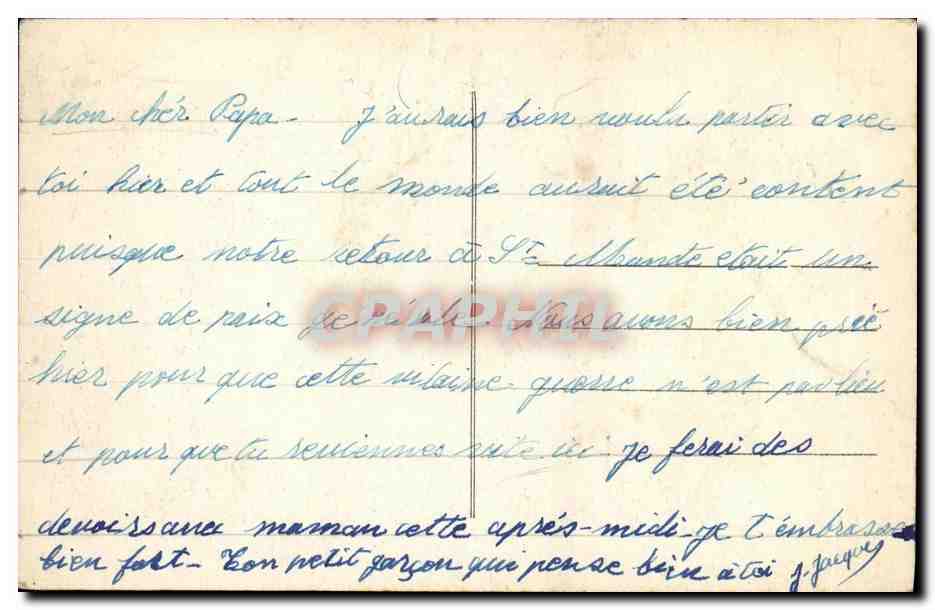 Mon chér Papa - J'aurais bien voulu partir avec
toi hier et tout le monde aurait été content
puisque notre retour à St- Mande etait un
signe de paix générale. Nous avons bien prié
hier pour que cette vilaine guerre n'est pas lieu
et pour que tu reviennes vite ici je ferai des
devoirs avec maman cette après-midi - je t'embrasse
bien fort - Ton petit garçon qui pense bien à toi J. Jacques
CPAPHIL